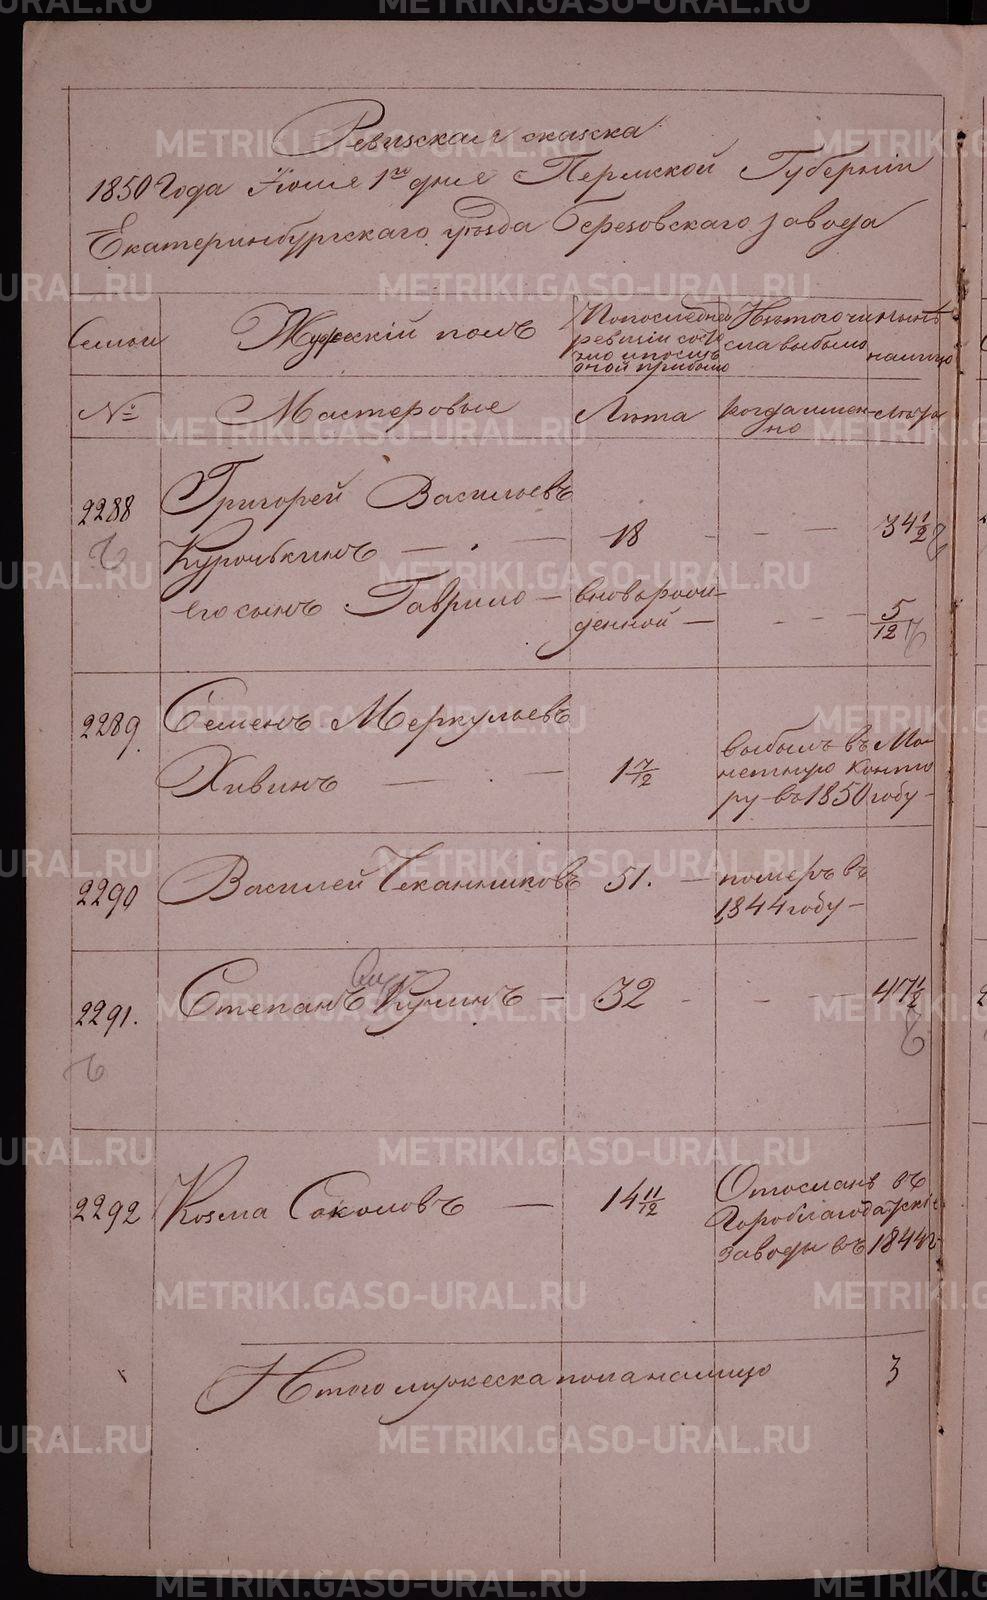 Ревизская сказка
1850 Года Июня 1го дня Пермской Губерніи
Екатеринбургскаго уѣзда Березовскаго завода
Семьи
Мужескій полъ
По последней
ревизіи состо
яло и посл
оной прибыло
Изъ того чи
сла выбыло
нынѣ
налицо
№
Мастеровые
Лѣта
когда имен-
но
лѣта
2288
Григорей Васильевъ
Курочькинъ — 18 - - — 34 1/2
его сынъ Гаврило — вновьрож-
денной — - - - 5/12
2289.
Семенъ Меркульевъ
Хивинъ — — 1 7/12
выбылъ въ Мо-
нетную Конто
ру въ 1850 году -
2290 Василей Чеканниковъ 51. — померъ въ
1844 году —
2291. Степанъ Кунинъ — 32 - - — 47 1/2
2292 Козма Соколовъ — 14 11/12
Отосланъ въ
Гороблагодатскіе
заводы въ 1844 г
Итого мужеска пола налицо 3
METRIKI.GASO-URAL.RU